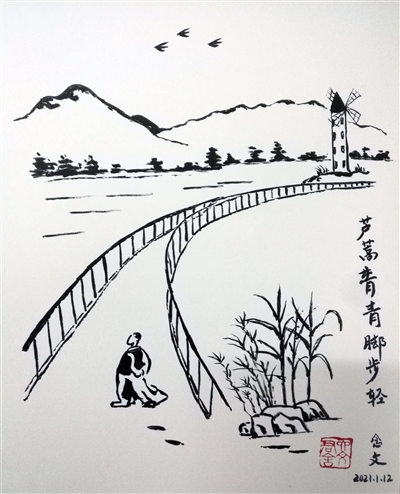 芦蒿青青脚步轻
文
2021.1.12